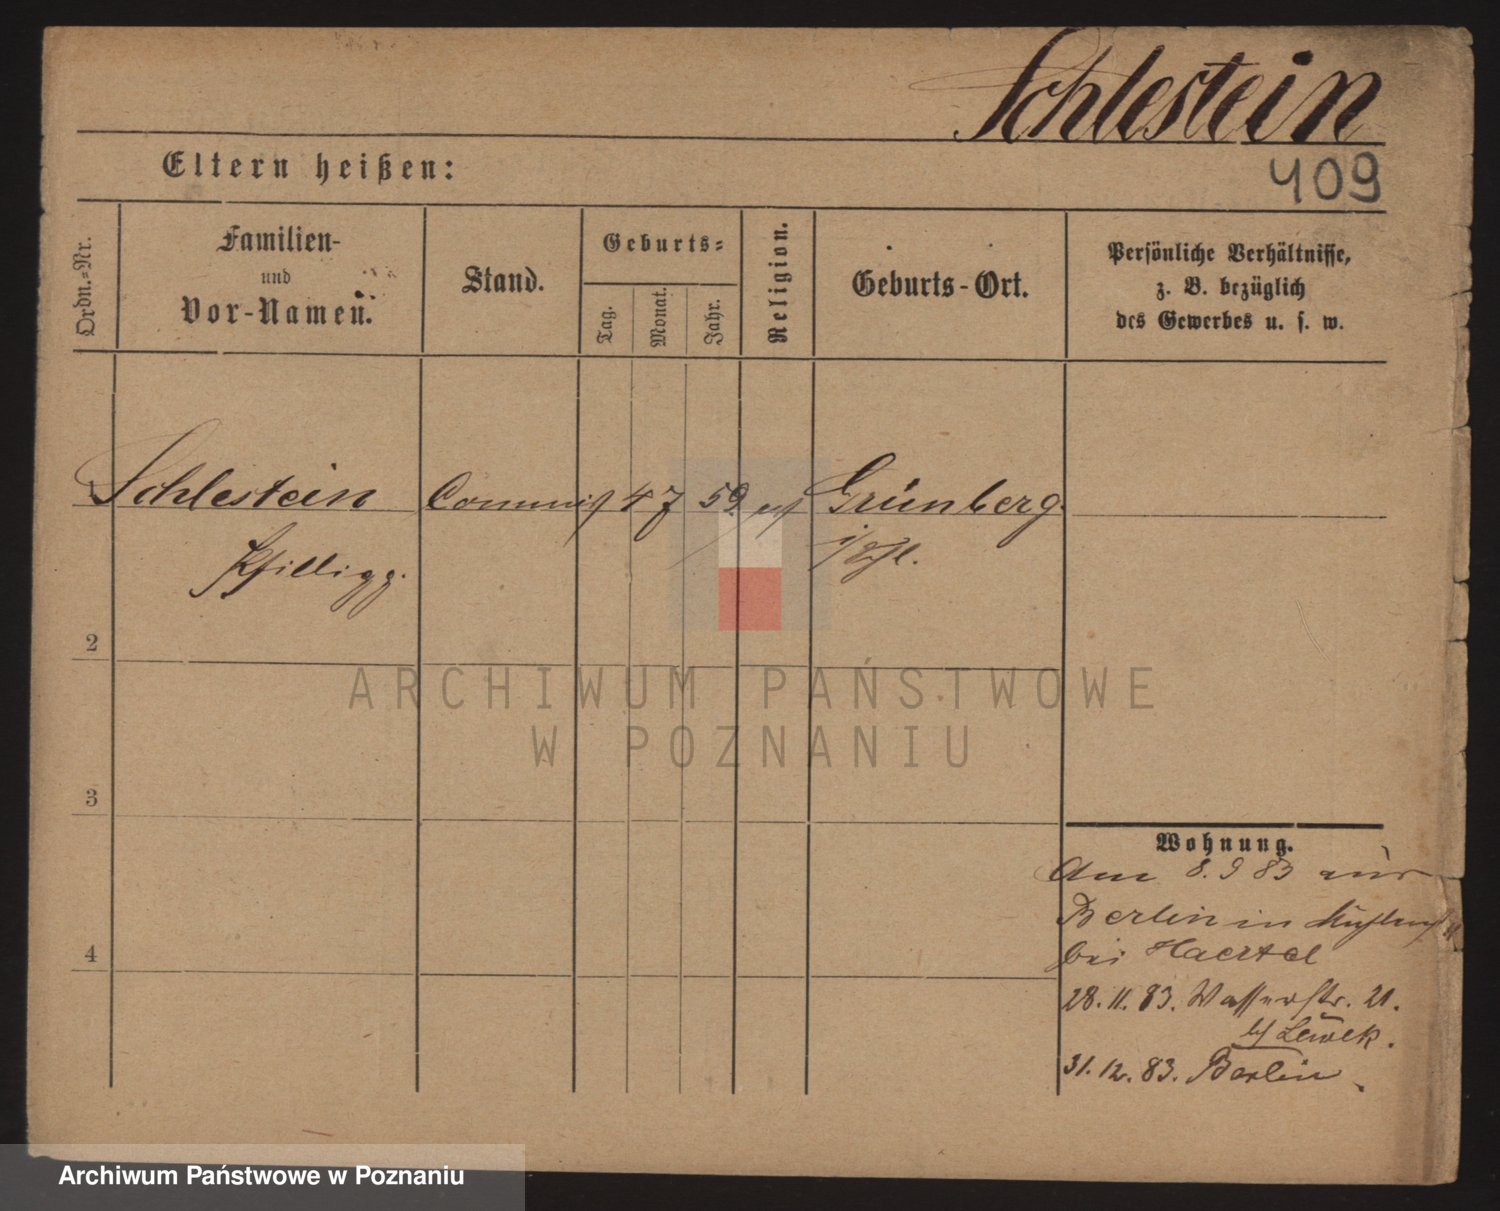 Schlestein
409
Eltern heißen:
Ordn.-Nr.
Familien-
und
Vor-Namen.
Stand.
Geburts-
Tag.
Monat.
Jahr.
Religion.
Geburts-Ort.
Persönliche Verhältnisse,
z. B. bezüglich
des Gewerbes u. s. w.
Schlestein Commis 4 7 59 Grünberg
i/Schl.
2
3
4
ARCHIWUM PAŃSTWOWE
W POZNANIU
Wohnung.
Am 8.9 83 aus
Berlin in
bei Haertel
28.11.83. Wasserstr. 21.
Lewek.
31.12.83. Berlin
Archiwum Państwowe w Poznaniu